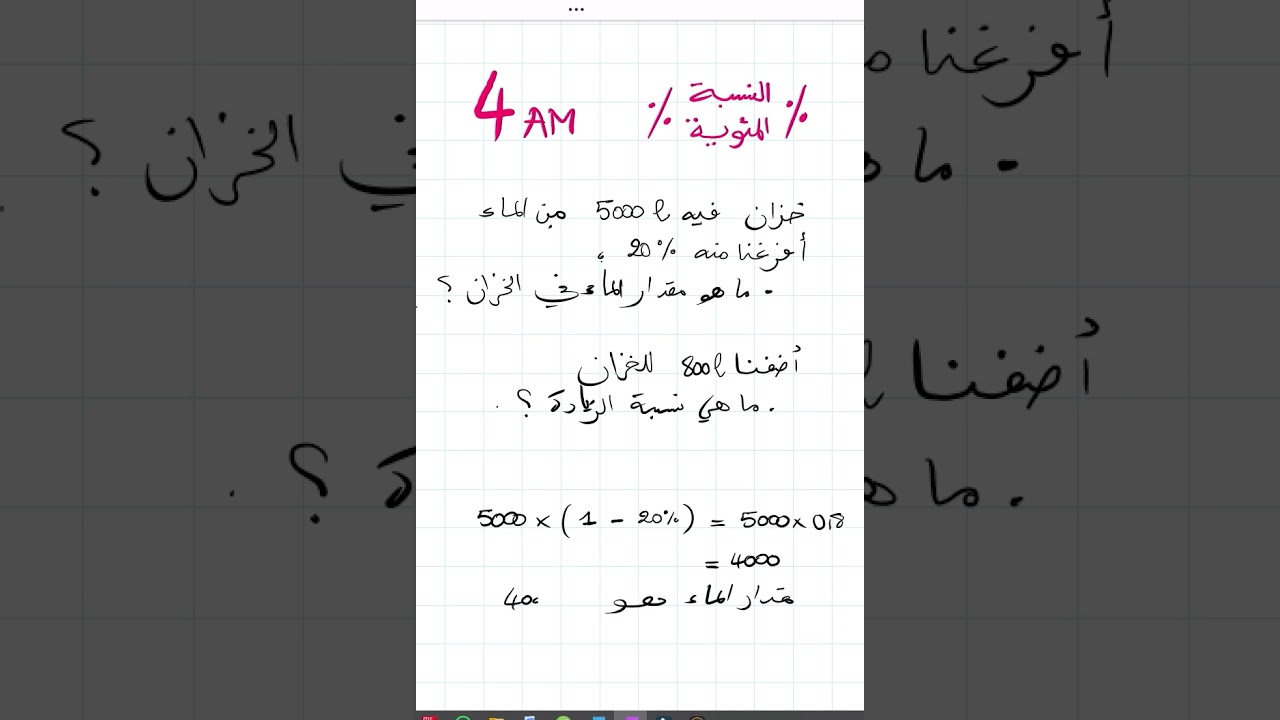 ...
4 AM % النسبة المئوية %
خزان فيه 5000 l من الماء
أفرغنا منه 20% ،
- ما هو مقدار الماء في الخزان ؟
أضفنا 800 l للخزان
. ما هي نسبة الزيادة ؟ .
5000 × ( 1 - 20% ) = 5000 × 0,8
= 4000
مقدار الماء هو 400